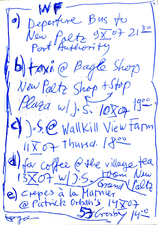 WF
a) Deperture Bus to
New Paltz 9X07 21:30
Port Authority
b) taxi @ Bagle Shop
New Paltz Shop + Stop
Plaza w/ J.S. 10X07 19:00
c) J.S. @ Wallkill View Farm
11X07 Thursd. 18:00
d) for Coffee @ the village tea
13X07 w/ J.S. room New Paltz
e) crepes à la Mamer
@ Patrick Orban's 14X07
57 Crosby 14:00